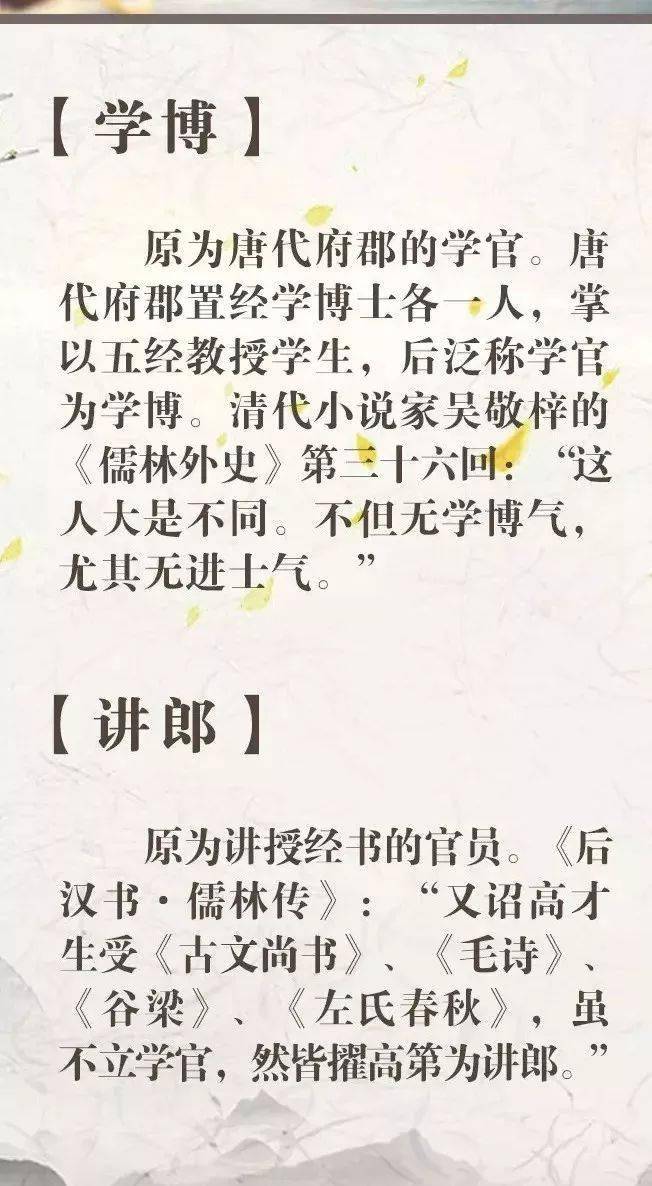 【学博】
原为唐代府郡的学官。唐
代府郡置经学博士各一人，掌
以五经教授学生，后泛称学官
为学博。清代小说家吴敬梓的
《儒林外史》第三十六回：“这
人大是不同。不但无学博气，
尤其无进士气。”
【讲郎】
原为讲授经书的官员。《后
汉书·儒林传》：“又诏高才
生受《古文尚书》、《毛诗》、
《谷梁》、《左氏春秋》，虽
不立学官，然皆擢高第为讲郎。”